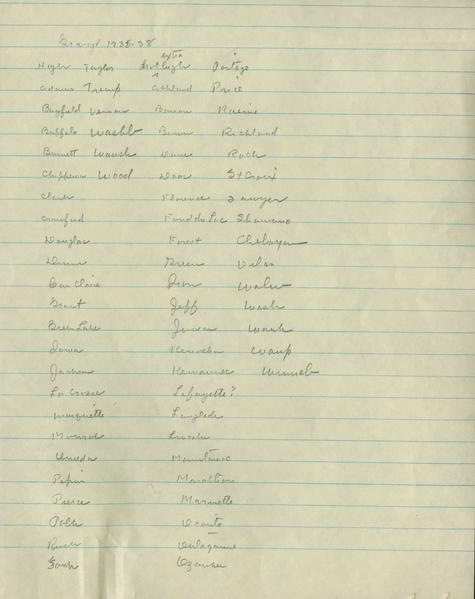 1938-38
Taylor extra Portage
Adams Tremp Ashland Price
Bayfield Vernon Barron Racine
Buffalo Washb Brown Richland
Burnett Waush Dane Rock
Chippewa Wood Door St Croix
Clark Florence Sawyer
Crawford Fond du Lac Shawano
Douglas Forest Cheboygan
Dunn Green Vilas
Eau Claire Iron Walw
Grant Jeff Wash
Green Lake Juneau Wauk
Iowa Kenosha Waup
Jackson Kewaunee Winneb
La Crosse Lafayette?
Marquette Langlade
Monroe Lincoln
Manitowoc
Pepin Marathon
Pierce Marinette
Polk Oconto
Rusk Outagamie
Sauk Ozaukee